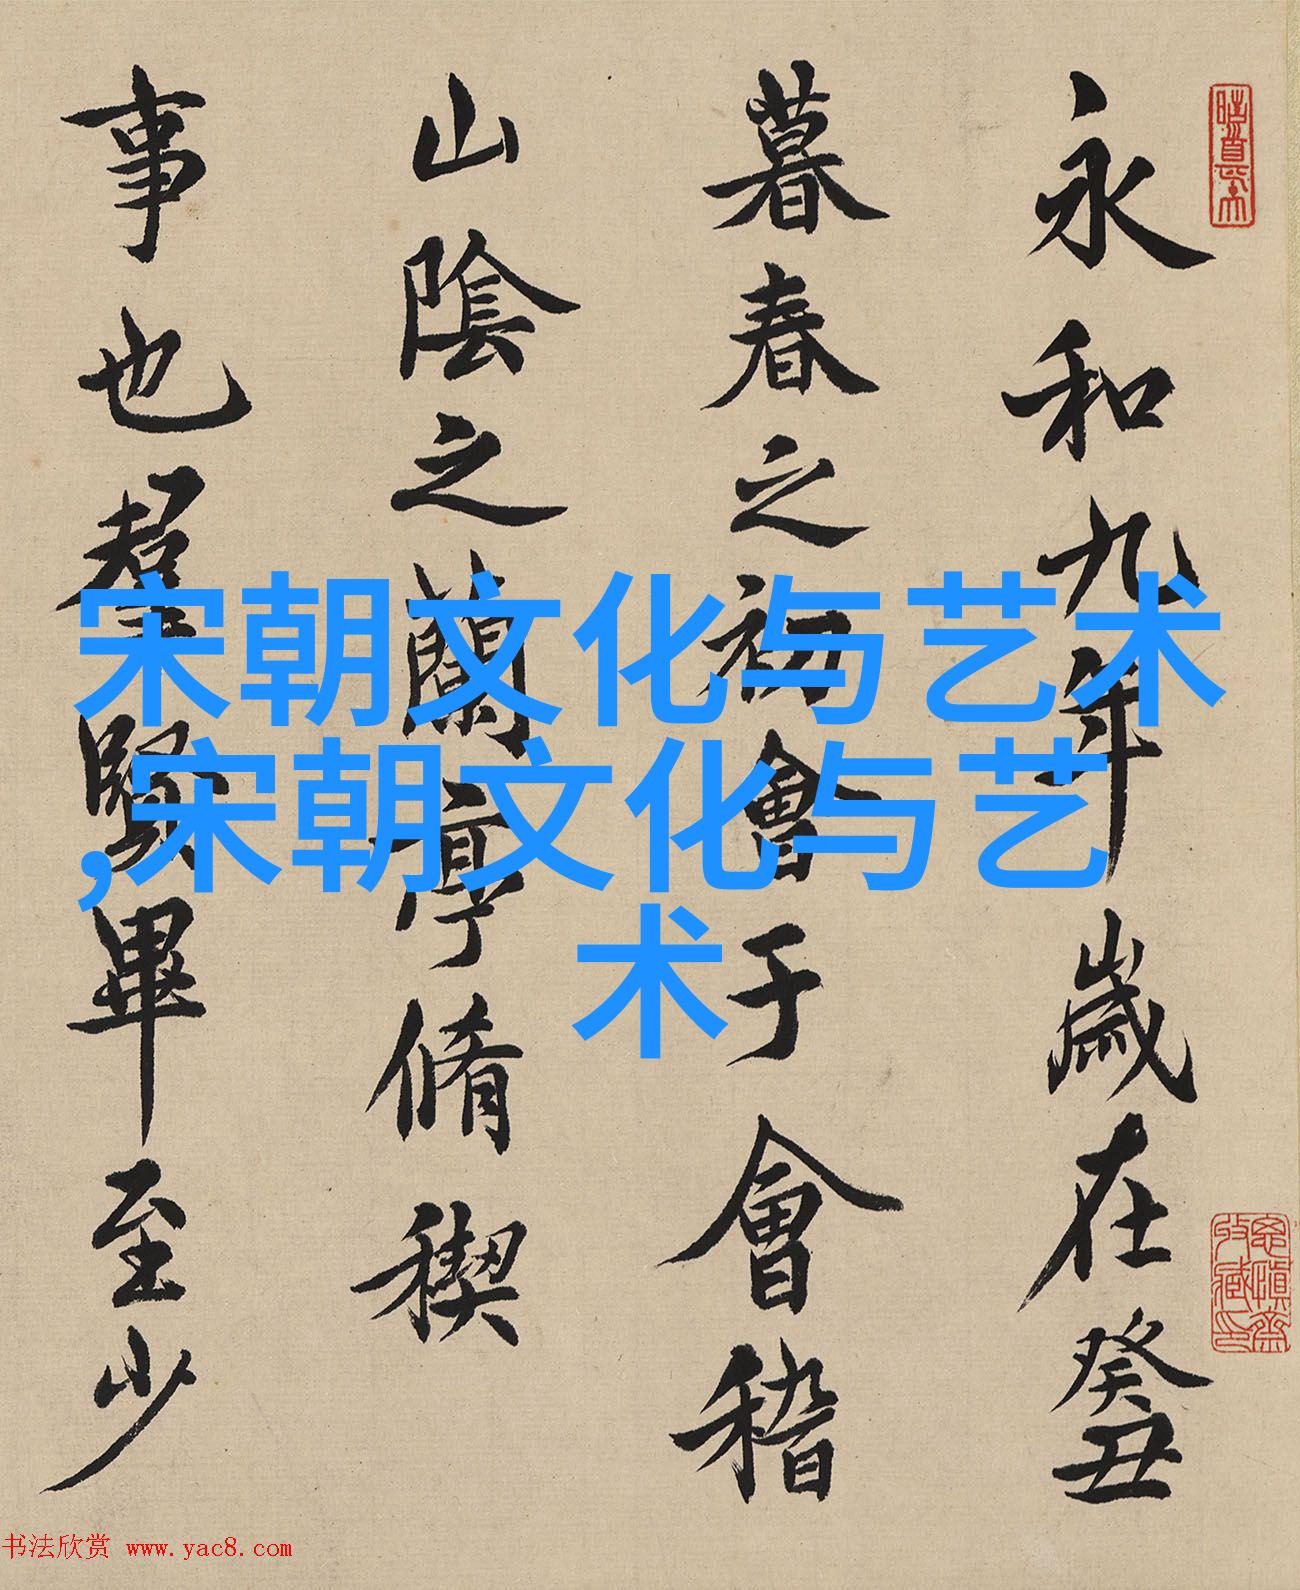 永和九年歲在癸丑
暮春之初會于會稽
山陰之蘭亭脩稧
事也羣賢畢至少
宋朝文化与艺术
,宋朝文化与艺
术
书法欣赏 www.yac8.com